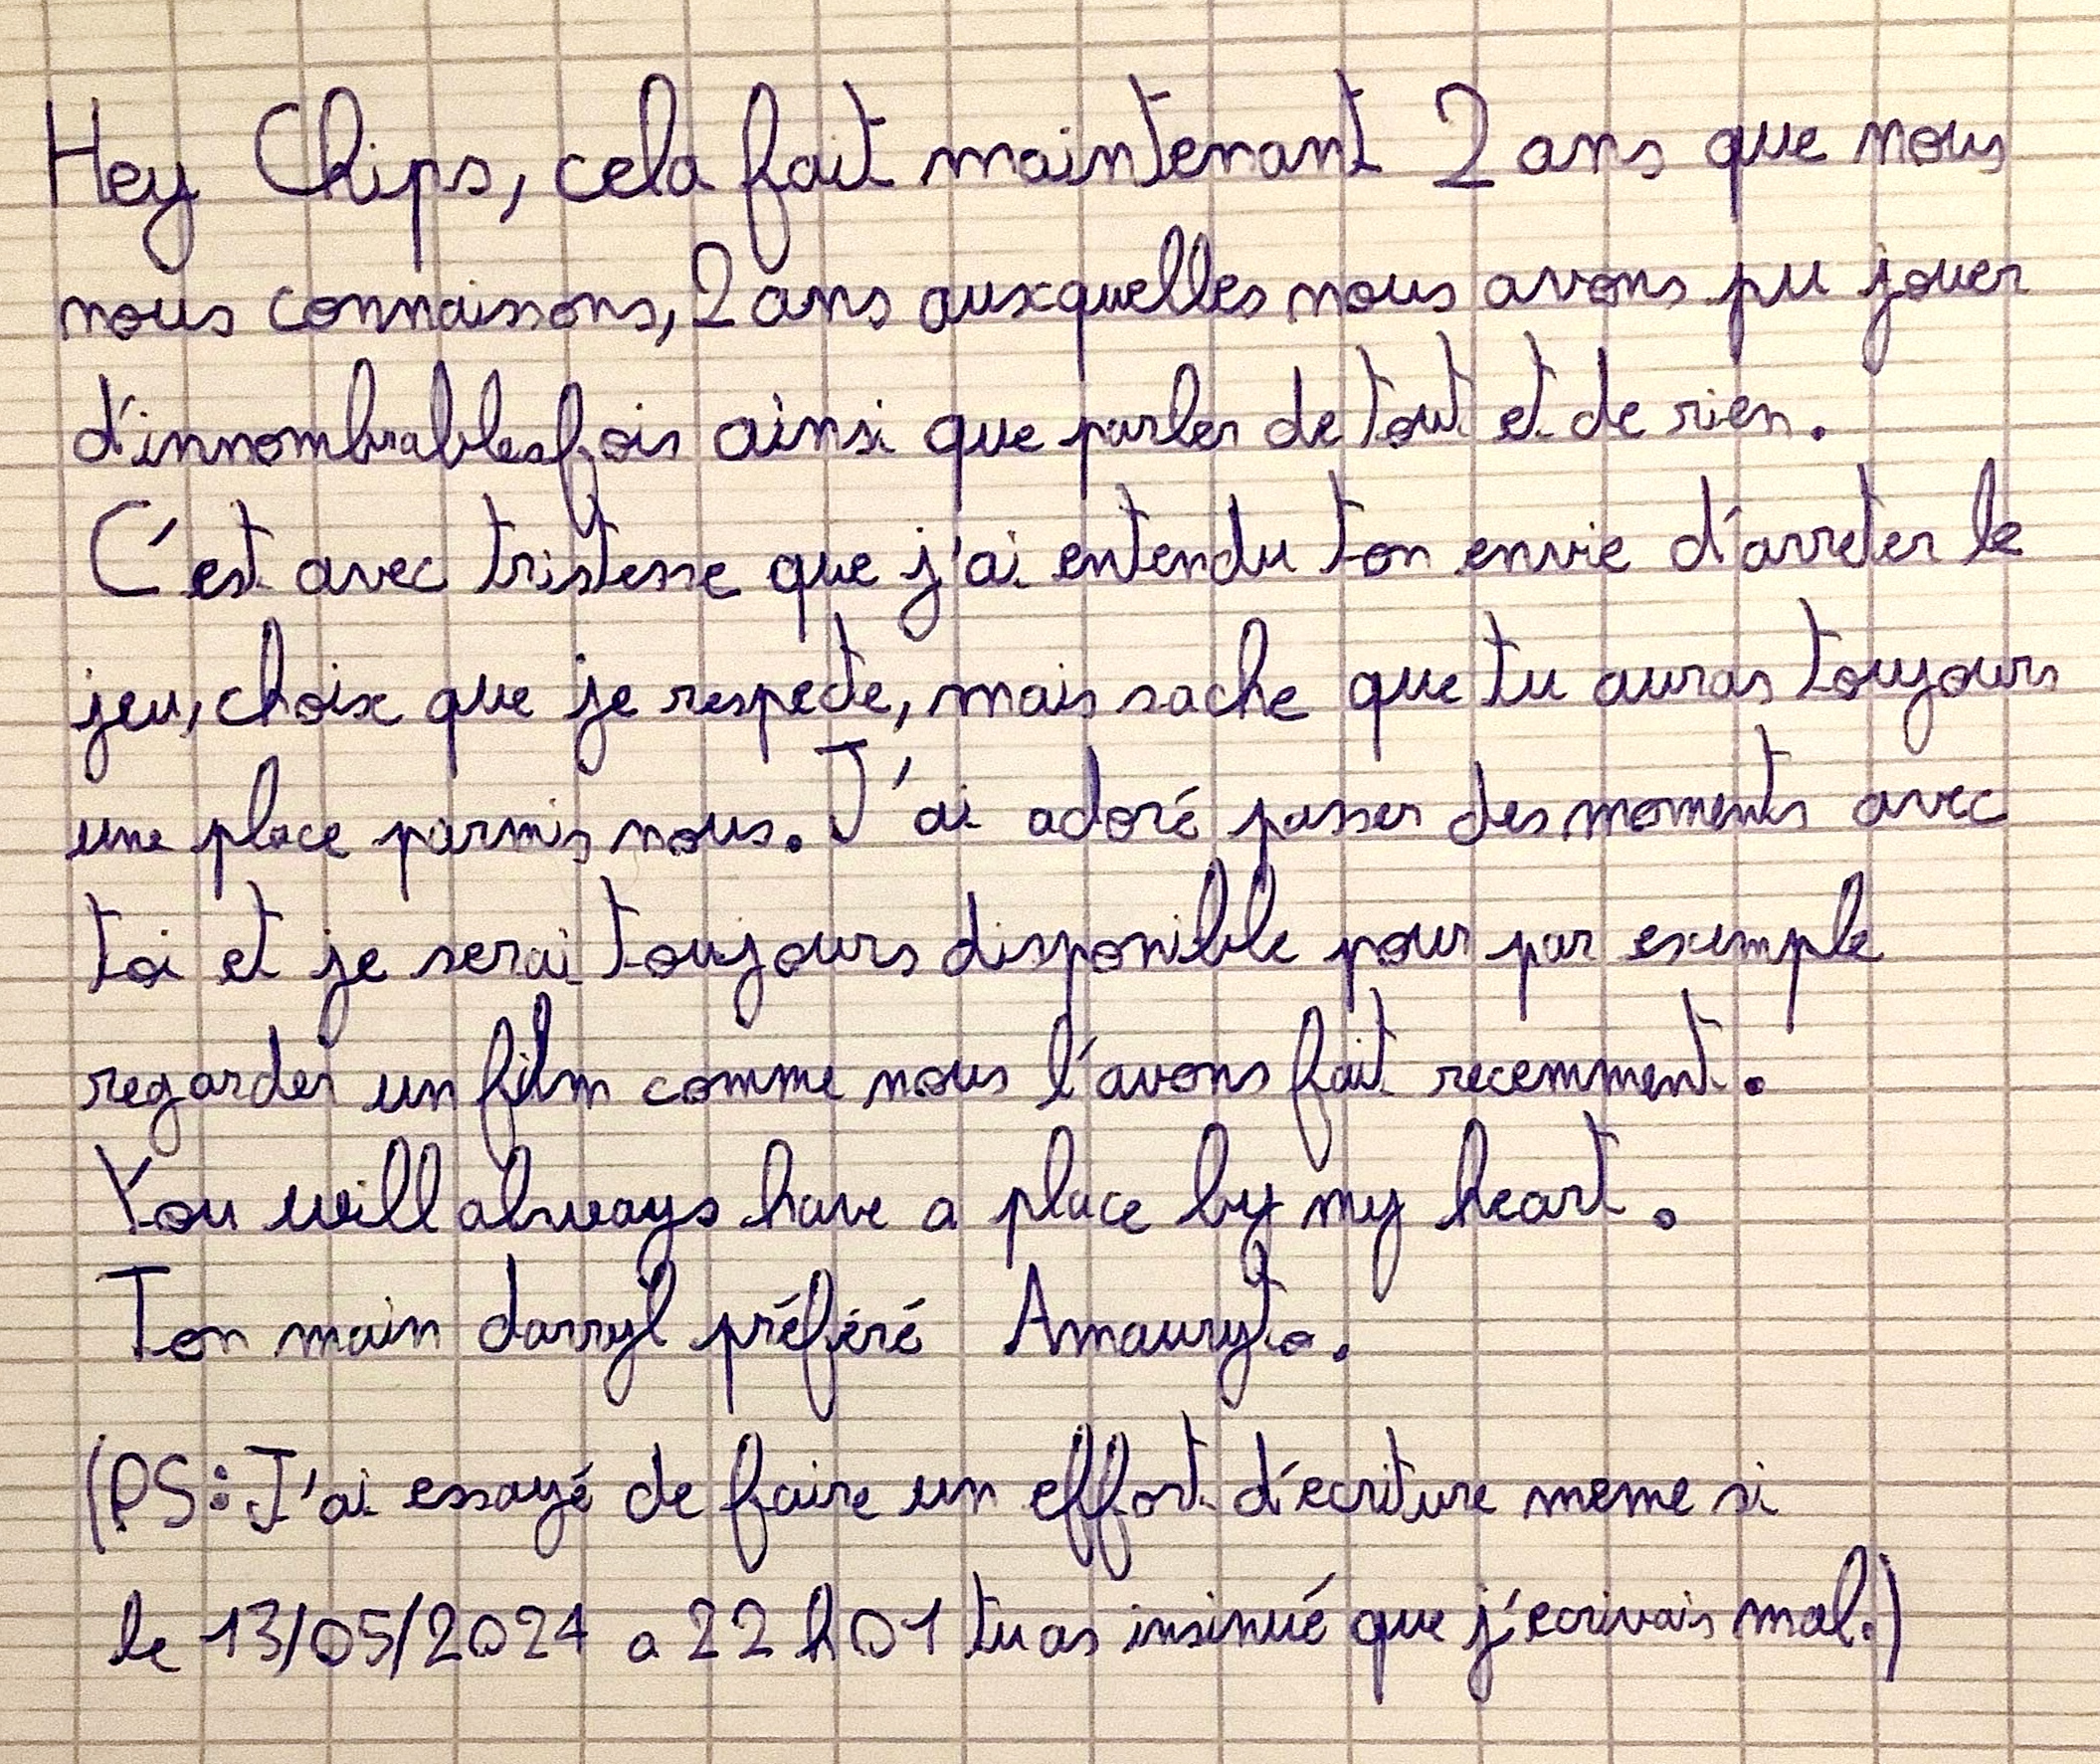 Hey Chips, cela fait maintenant 2 ans que nous
nous connaissons, 2 ans auxquelles nous avons pu jouer
d'innombrables fois ainsi que parler de tout et de rien.
C'est avec tristesse que j'ai entendu ton envie d'arreter le
jeu, choix que je respecte, mais sache que tu auras toujours
une place parmis nous. J'ai adoré passer des moments avec
toi et je serai toujours disponible pour par exemple
regarder un film comme nous l'avons fait recemment.
You will always have a place by my heart.
Ton main darryl préféré Amauryto.
(PS: J'ai essayé de faire un effort d'écriture meme si
le 13/05/2024 a 22h01 tu as insinué que j'ecrivais mal.)